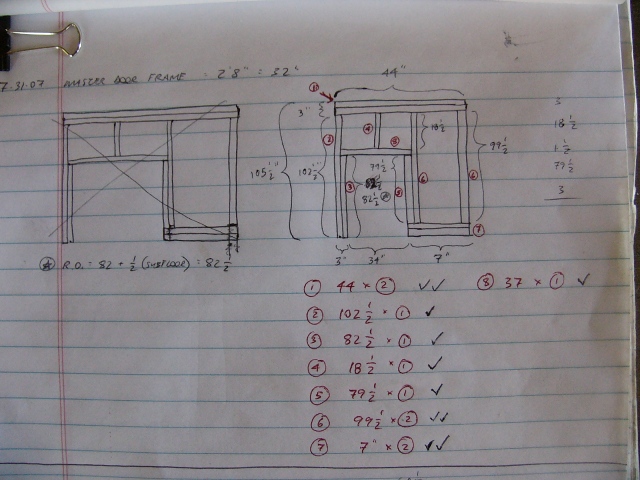 7-31-07 MASTER DOOR FRAME - 2'8" = 32"
44"
①
3"
② ④ ⑧ 18 1/2
3
18 1/2
1 1/2
79 1/2
3
105 1/2" 102 1/2" 79 1/2 99 1/2
③ 82 1/2 ⑤ ⑥ ⑥
⑦
3" 34" 7"
R.O. = 82 + 1/2 (SUBFLOOR) = 82 1/2
① 44 × ② ✓✓ ⑧ 37 × ① ✓
② 102 1/2 × ① ✓
③ 82 1/2 × ① ✓
④ 18 1/2 × ① ✓
⑤ 79 1/2 × ① ✓
⑥ 99 1/2 × ② ✓✓
⑦ 7" × ② ✓✓